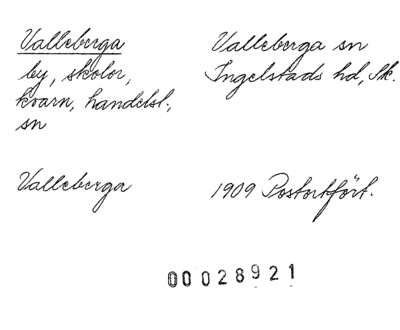 Valleberga
by, skolor,
kvarn, handelsl.,
sn
Valleberga sn
Ingelstads hd, Sk.
Valleberga
1909 Postortfört.
00028921